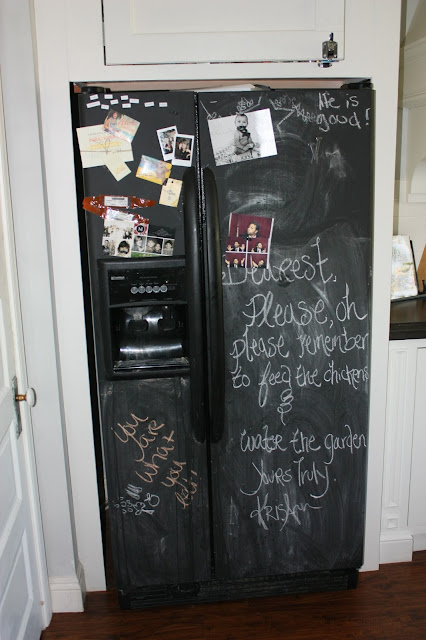 life is
good!
Dearest,
Please, oh
please remember
to feed the chickens
&
water the garden
Yours Truly,
KrisAnn
you
are
what
you